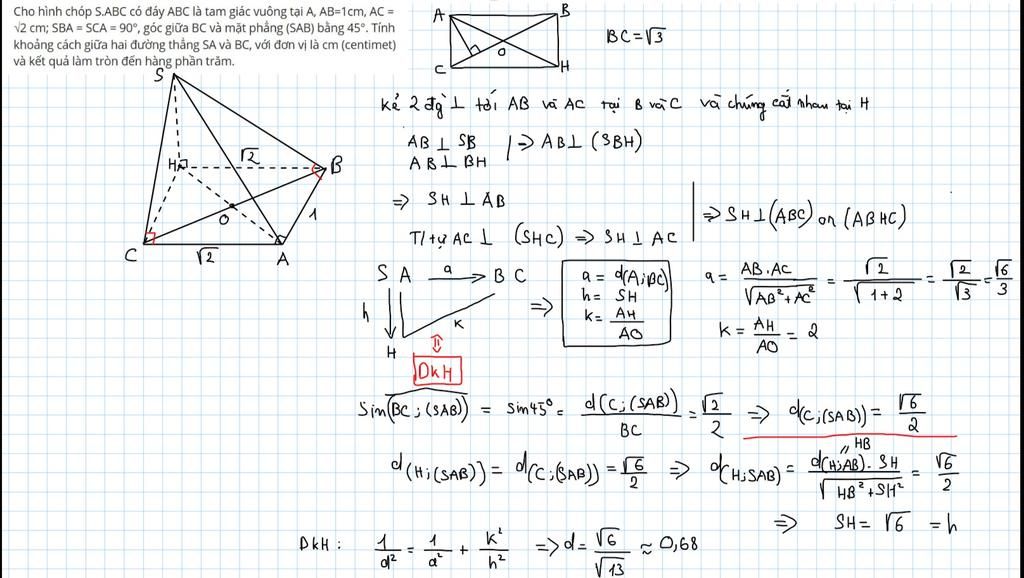 Cho hình chóp S.ABC có đáy ABC là tam giác vuông tại A, AB=1cm, AC =
√2 cm; SBA = SCA = 90°, góc giữa BC và mặt phẳng (SAB) bằng 45°. Tính
khoảng cách giữa hai đường thẳng SA và BC, với đơn vị là cm (centimet)
và kết quả làm tròn đến hàng phần trăm.
A B
O
C H
BC=√3
S
H √2 B
O 1
C √2 A
Kẻ 2 đg ⊥ tới AB và AC tại B và C và chúng cắt nhau tại H
AB ⊥ SB
AB ⊥ BH
=> AB⊥ (SBH)
=> SH ⊥ AB
T/tự AC ⊥ (SHC) => SH ⊥ AC
=> SH⊥(ABC) or (ABHC)
S A a B C
h k
H
DkH
=>
a = d(A;BC)
h= SH
k= AH/AO
a = AB.AC/√(AB²+AC²) = √2/√(1+2) = √2/√3 = √6/3
k = AH/AO = 2
Sin(BC;(SAB)) = sin45° = d(C;(SAB))/BC = √2/2 => d(C;(SAB)) = √6/2
HB
d(H;(SAB)) = d(C;(SAB)) = √6/2 => d(H;SAB) = d(H;AB).SH/√(HB²+SH²) = √6/2
=> SH= √6 = h
DkH : 1/d² = 1/a² + k²/h² => d = √6/√13 ≈ 0,68